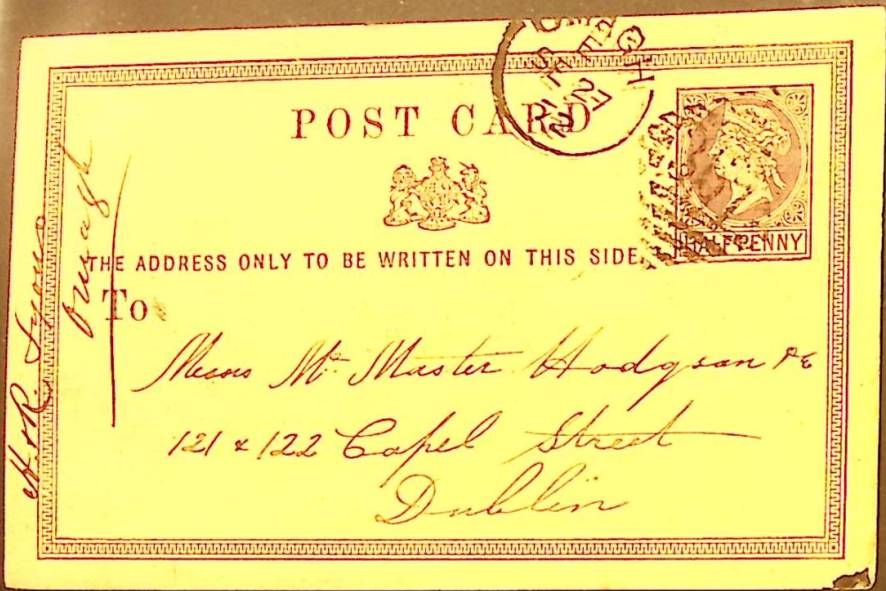 POST CARD
HALFPENNY
THE ADDRESS ONLY TO BE WRITTEN ON THIS SIDE.
To
Messrs Mc Master Hodgson &
121 & 122 Capel Street
Dublin
Lyons